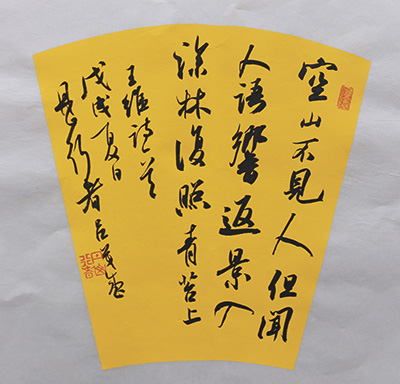 空山不見人但聞
人語響返景入
深林復照青苔上
王維詩
戊戌夏日
行者呂